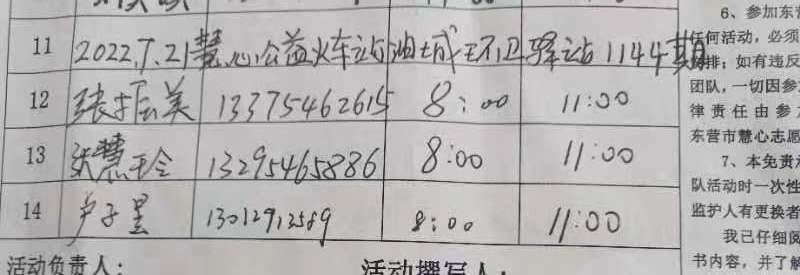 11 2022.7.21慧心公益火车站油城环卫驿站1144期
12 张振美 13375462615 8:00 11:00
13 张慧玲 13295465886 8:00 11:00
14 卢子星 13012913589 8:00 11:00
活动负责人： 活动撰写人：
6、参加东营
任何活动，必须
排；如有违反
团队，一切因参
律责任由参
东营市慧心志愿
7、本免责
队活动时一次性
监护人有更换者
我已仔细阅
书内容，并了解